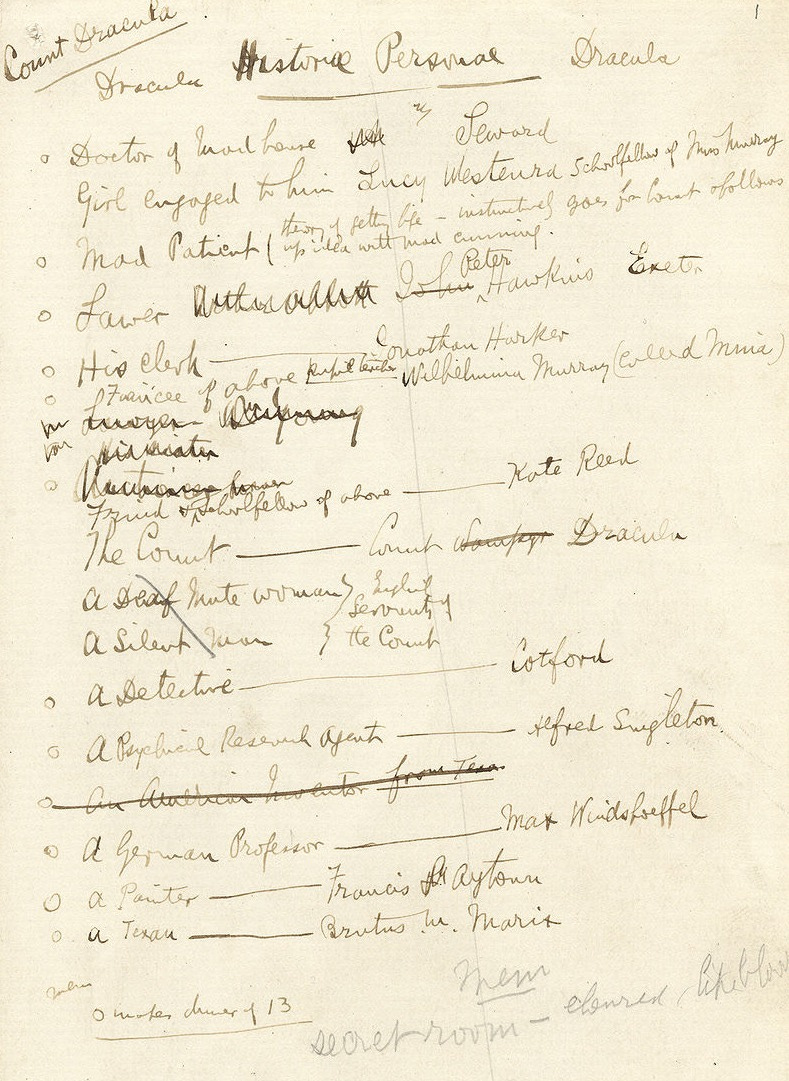 1
Count Dracula
Dracula Historiæ Personae Dracula
Doctor of Madhouse Seward
Girl engaged to him Lucy Westenra Schoolfellow of Miss Murray
Mad Patient (theory of getting life – instinctively goes for Count & follows
up idea with mad cunning.
Lawer John Peter Hawkins Exeter
His clerk — Jonathan Harker
Fiancée of above pupil teacher Wilhelmina Murray (called Mina)
Lawyer
Friend & schoolfellow of above — Kate Reed
The Count — Count Wampyr Dracula
A Deaf Mute woman } English
Servants of
A Silent Man } the Count
A Detective — Cotford
A Psychical Research Agent — Alfred Singleton.
An American Inventor from Texas
A German Professor — Max Windshoeffel
A Painter — Francis Aytown
A Texan — Brutus M. Marix
mem
makes dinner of 13
Mem
secret room – coloured like blood